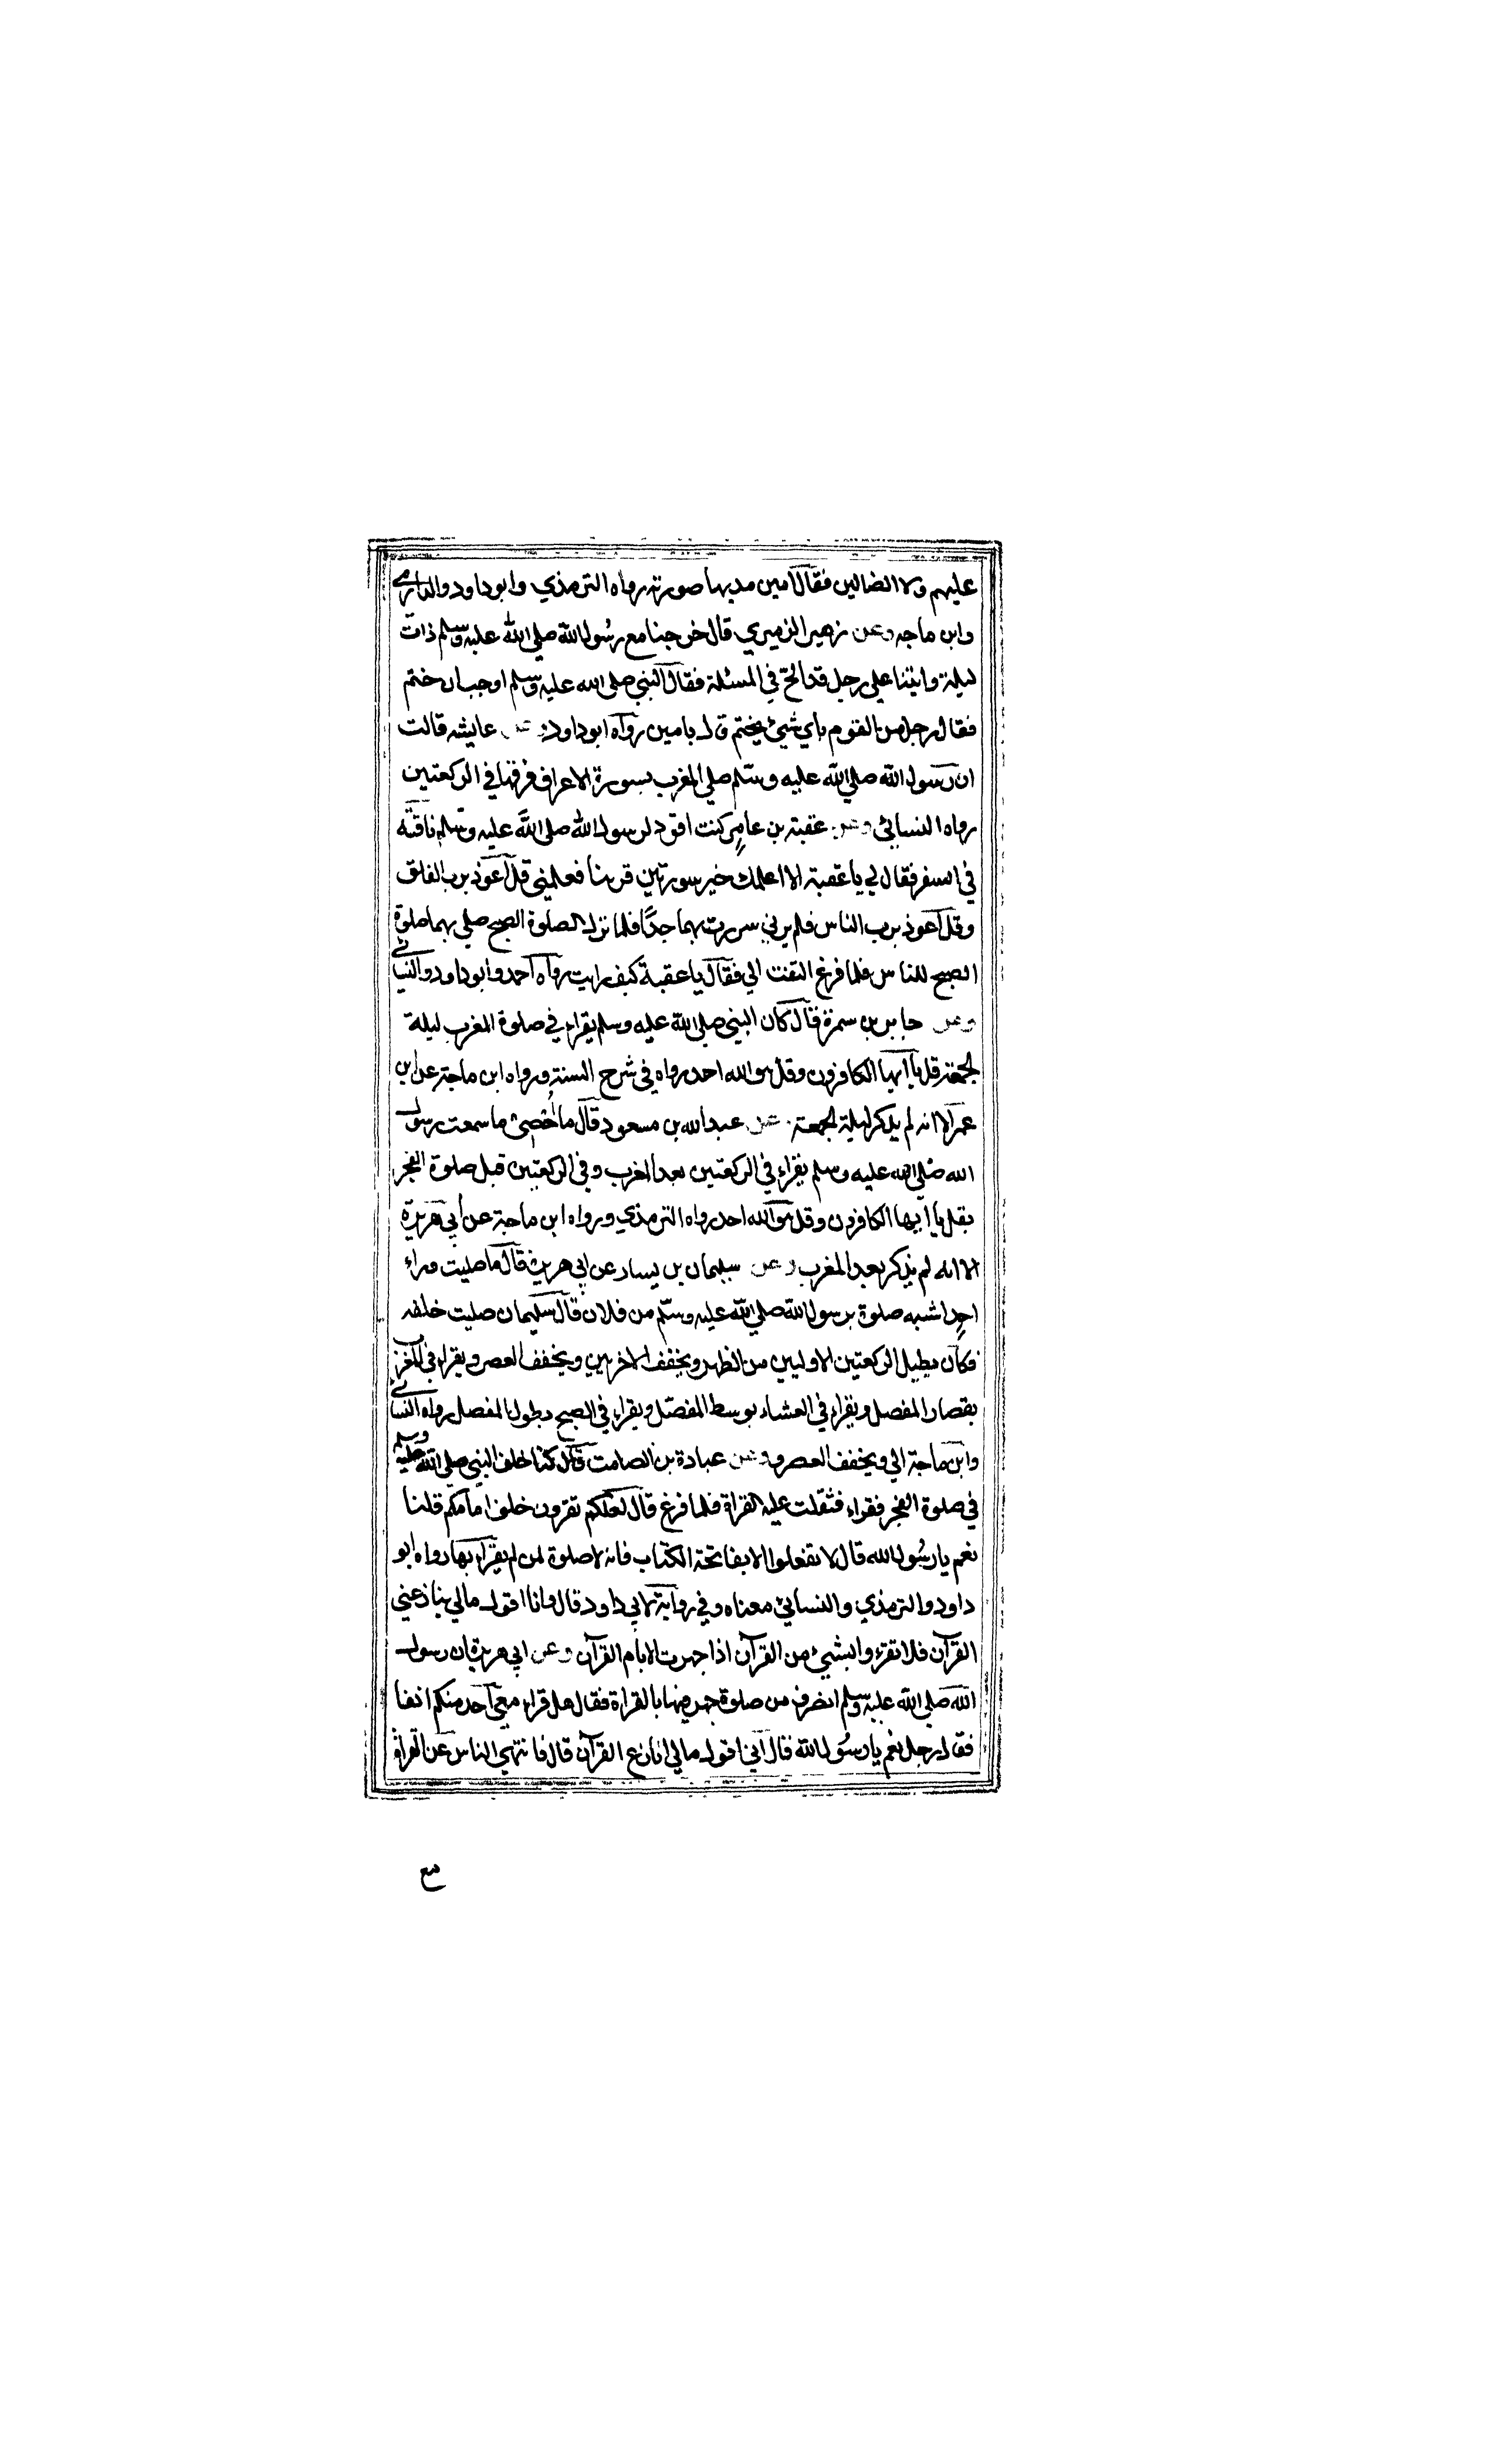 عليهم ولا الضالين فقال امين مد بها صوته رواه الترمذي وابو داود والدارمي
وابن ماجه وعن زهير النميري قال خرجنا مع رسول الله صلي الله عليه وسلم ذات
ليلة واتينا علي رجل قد الح في المسئلة فقال النبي صلي الله عليه وسلم اوجب ان ختم
فقال رجل من القوم باي شيئ يختم قال بامين رواه ابو داود وعن عايشه قالت
ان رسول الله صلي الله عليه وسلم صلي المغرب بسورة الاعراف فرقها في الركعتين
رواه النسائي وعن عقبة بن عامر كنت اقود لرسول الله صلي الله عليه وسلم ناقته
في السفر فقال لي يا عقبة الا اعلمك خير سورتين قرءتا فعلمني قل اعوذ برب الفلق
وقل اعوذ برب الناس فلم يرني سررت بهما جدًا فلما نزل لصلوة الصبح صلي بهما صلوة
الصبح للناس فلما فرغ التفت الي فقال يا عقبة كيف رايت رواه احمد وابو داود والنسائي
وعن جابر بن سمرة قال كان النبي صلي الله عليه وسلم يقراء في صلوة المغرب ليلة
الجمعة قل يا ايها الكافرون وقل هو الله احد رواه في شرح السنة ورواه ابن ماجة عن ابن
عمر الا انه لم يذكر ليلة الجمعة وعن عبد الله بن مسعود قال ما احصي ما سمعت رسول
الله صلي الله عليه وسلم يقراء في الركعتين بعد المغرب وفي الركعتين قبل صلوة الفجر
بقل يا ايها الكافرون وقل هو الله احد رواه الترمذي ورواه ابن ماجة عن أبي هريرة
الا انه لم يذكر بعد المغرب وعن سليمان بن يسار عن ابي هريرة قال ما صليت وراء
احد اشبه صلوة برسول الله صلي الله عليه وسلم من فلان قال سليمان صليت خلفه
فكان يطيل الركعتين الاوليين من الظهر ويخفف الاخريين ويخفف العصر ويقراء في المغرب
بقصار المفصل ويقراء في العشاء بوسط المفصل ويقراء في الصبح بطول المفصل رواه النسائي
وابن ماجة الي ويخفف العصر وعن عبادة بن الصامت قال كنا خلف النبي صلي الله عليه وسلم
في صلوة الفجر فقراء فثقلت عليه القراة فلما فرغ قال لعلكم تقرون خلف امامكم قلنا
نعم يا رسول الله قال لا تفعلوا الا بفاتحة الكتاب فانه لا صلوة لمن لم يقراء بها رواه ابو
داود والترمذي والنسائي معناه وفي رواية لابي داود قال وانا اقول مالي ينازعني
القرآن فلا تقرءوا بشيئ من القرآن اذا جهرت الا بام القرآن وعن ابي هريرة ان رسول
الله صلي الله عليه وسلم انصرف من صلوة جهر فيها بالقراة فقال هل قراء معي احد منكم انفا
فقال رجل نعم يا رسول الله قال اني اقول مالي انازع القرآن قال فانتهي الناس عن القراة